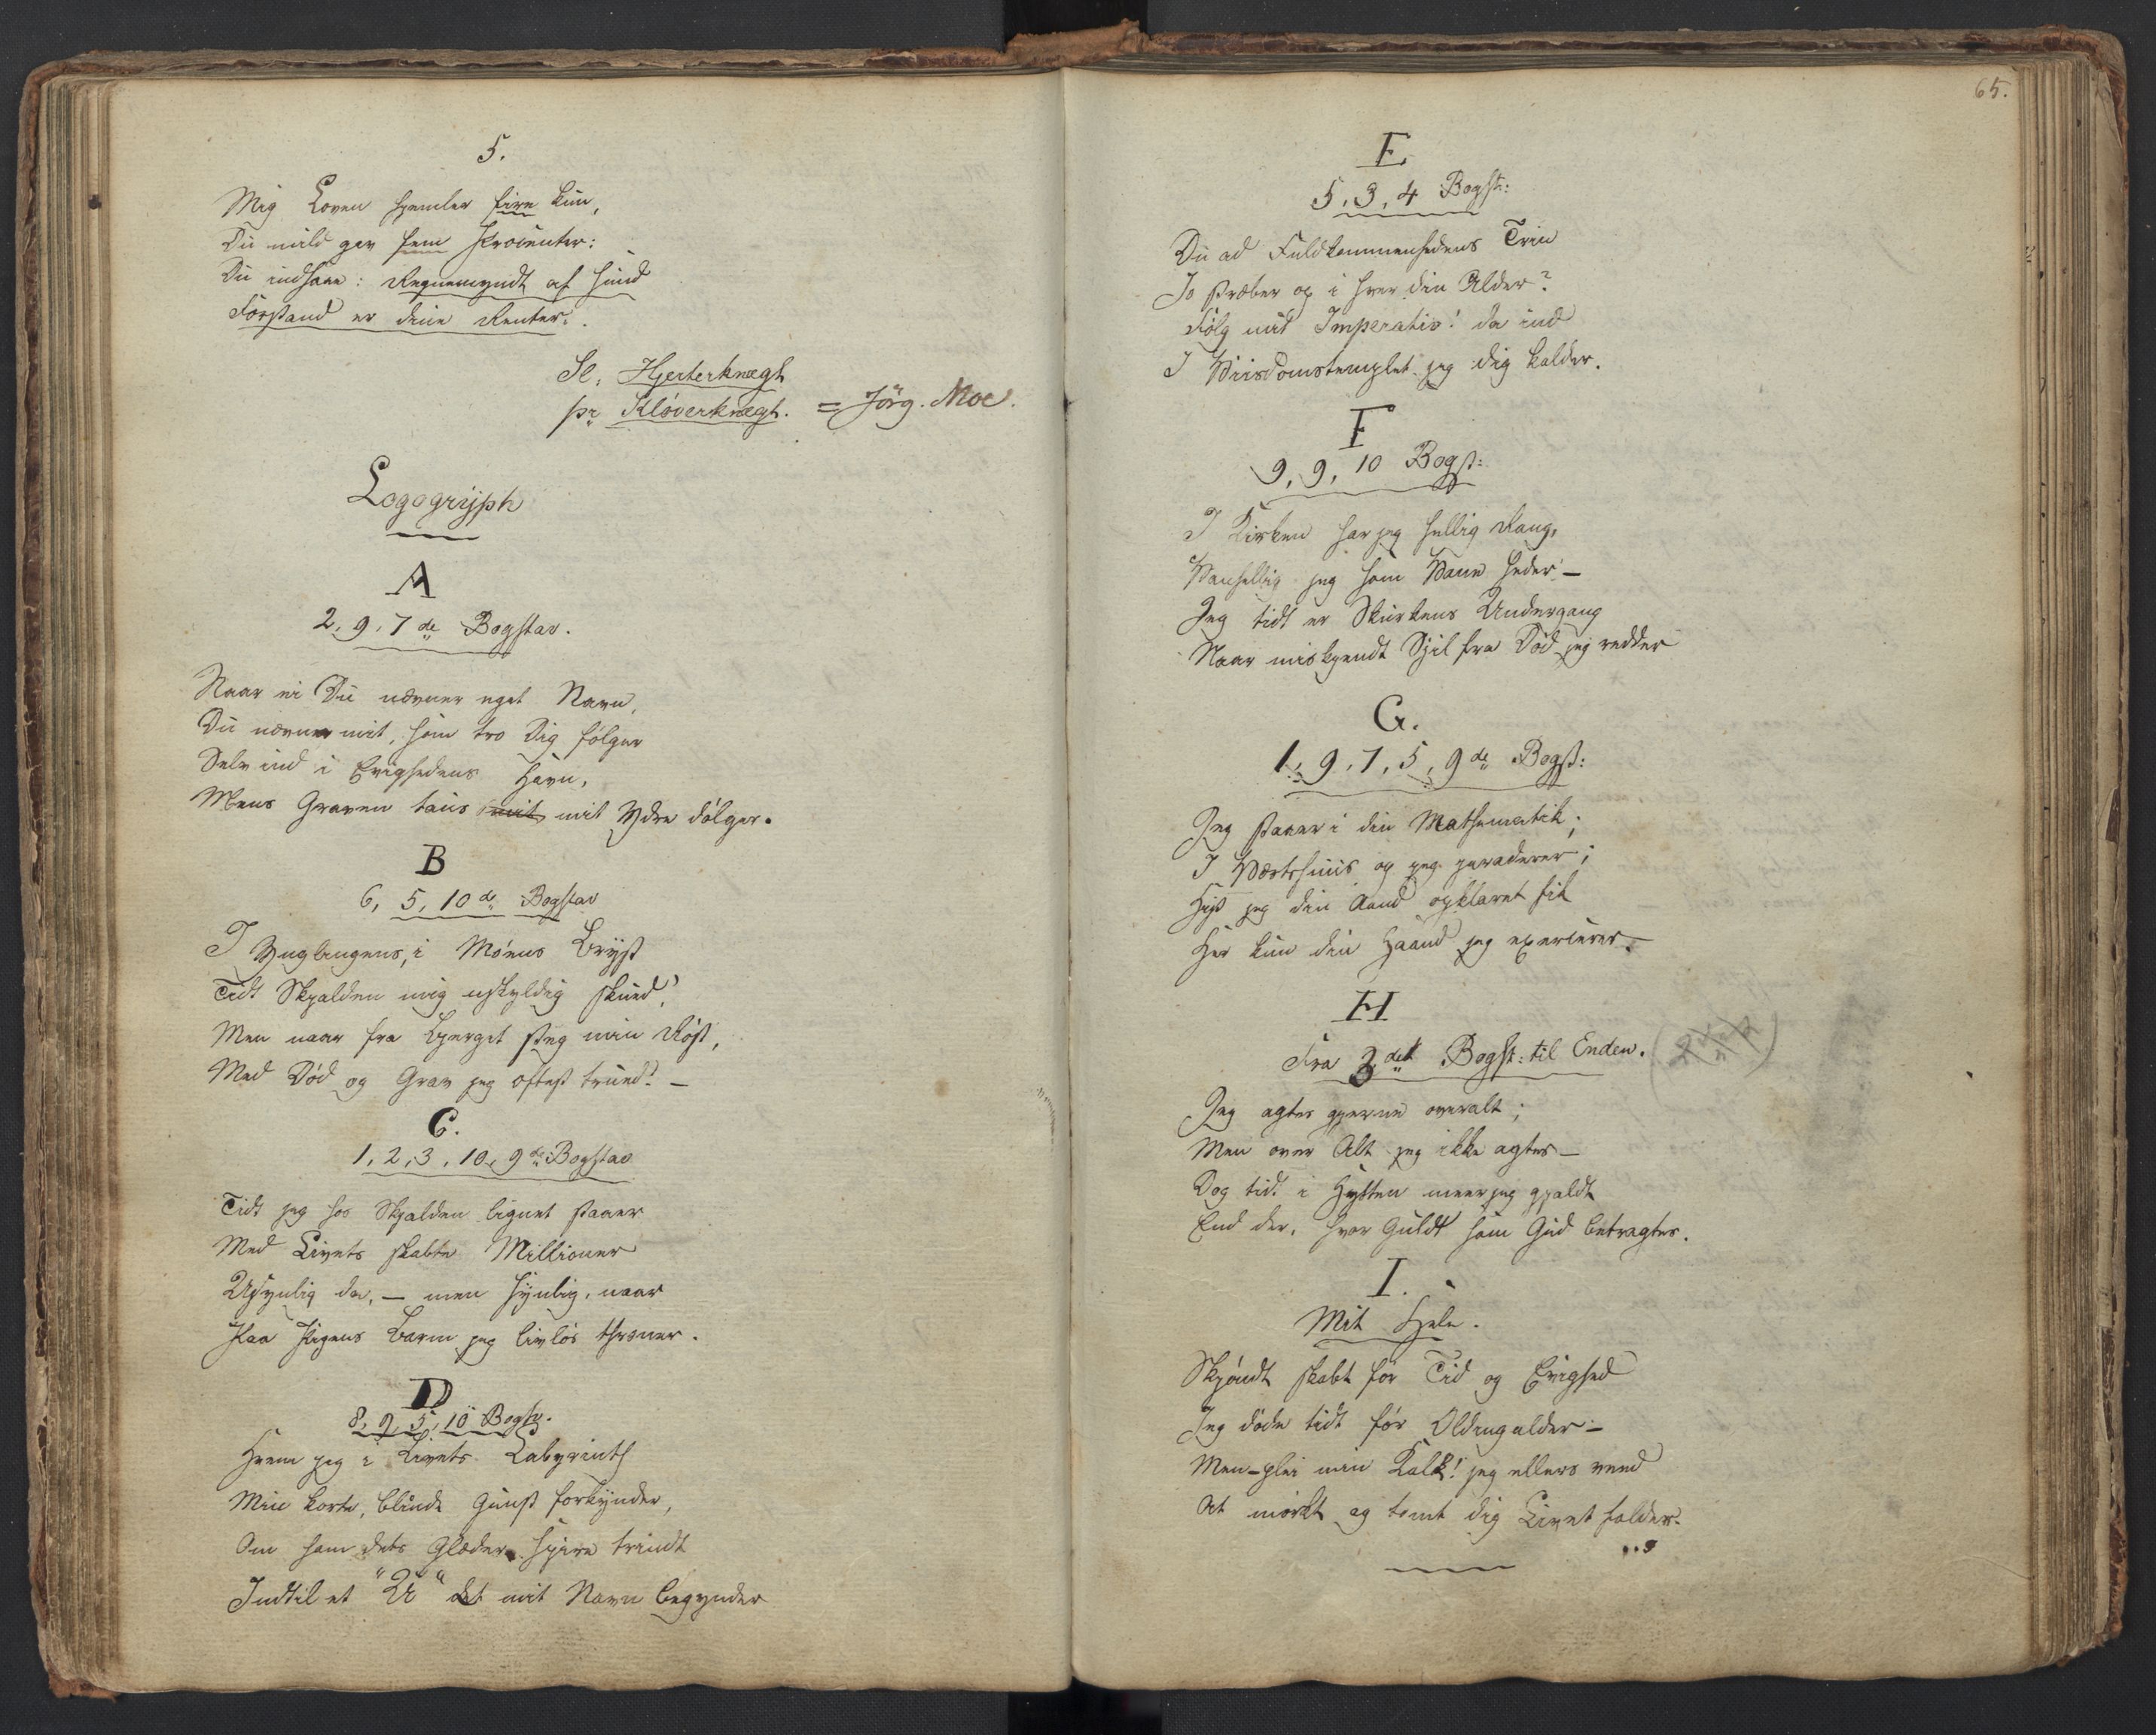 5.
Mig Loven hjemler fire kun,
Du mild gav fem Procenter:
Du indsaae: Regnemyndt af sund
Forstand er dine Renter.
Se: Hjerterknægt
pr Kløverknægt. = Jörg. Moe.
Logogryph
A
2, 9, 7de Bogstav.
Naar ei Du nævner eget Navn,
Du nævner mit, som tro Dig følger
Selv ind i Evighedens Havn,
Mens Graven taus mit mit Ydre dølger.
B
6, 5, 10de Bogstav
I Ynglingens, i Møens Bryst
Tidt Skjalden mig uskyldig skued',
Men naar fra Bjerget steg min Røst,
Med Död og Grav jeg oftest trued'. –
C.
1, 2, 3, 10, 9de Bogstav
Tidt jeg hos Skjalden lignet staaer
Med Livets skabte Millioner
Usynlig da, – men synlig, naar
Paa Pigens Barm jeg livlös throner.
D
8, 9, 5, 10 Bogst.
Hvem jeg i Livets Labyrinth
Min korte, blinde Gunst forkynder,
Om ham dets Glæder spire trindt
Indtil et "U" det mit Navn begynder
65.
E
5, 3, 4 Bogst:
Du ad Fuldkommenhedens Trin
Jo stræber op i hver din Alder?
Følg mit Imperativ! da ind
I Viisdomstemplet jeg dig kalder.
F
9, 9, 10 Bogst:
I Kirken har jeg hellig Rang,
Vanhellig jeg som Vane heder –
Jeg tidt er Skurkens Undergang
Naar miskjendt Sjel fra Död jeg redder
G.
1, 9, 7, 5, 9de Bogst:
Jeg staaer i din Mathematik;
I Værtshuus og jeg paraderer;
Hist jeg din Aand opklaret fik
Her kun din Haand jeg exercerer. –
H
Fra 3die Bogst: til Enden.
Jeg agtes gjerne overalt;
Men over Alt jeg ikke agtes –
Dog tidt i Hytten meer jeg gjaldt
End der, hvor Guldt som Gud betragtes.
I.
Mit Hele.
Skjöndt skabt for Tid og Evighed
Jeg döde tidt för Oldingalder –
Men – plei min Kalk! jeg ellers veed
At mörkt og tomt dig Livet falder.